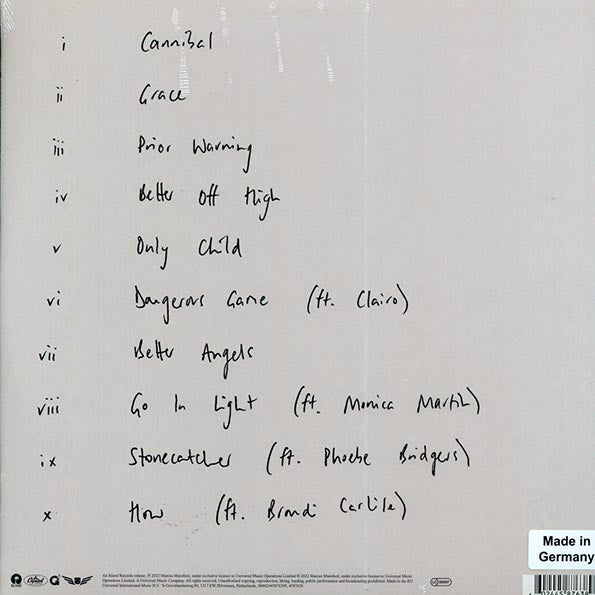 i Cannibal
ii Grace
iii Prior Warning
iv Better Off High
v Only Child
vi Dangerous Game (ft. Clairo)
vii Better Angels
viii Go In Light (ft. Monica Martin)
ix Stonecatcher (ft. Phoebe Bridgers)
x How (ft. Brandi Carlile)
Made in
Germany
An Island Records release. ℗ 2022 Marcus Mumford, under exclusive licence to Universal Music Operations Limited © 2022 Marcus Mumford, under exclusive licence to Universal Music
Operations Limited. A Universal Music Company. All rights reserved. Unauthorised copying, reproduction, hiring, lending, public performance and broadcasting prohibited. Made in the EU.
ISLAND Capitol